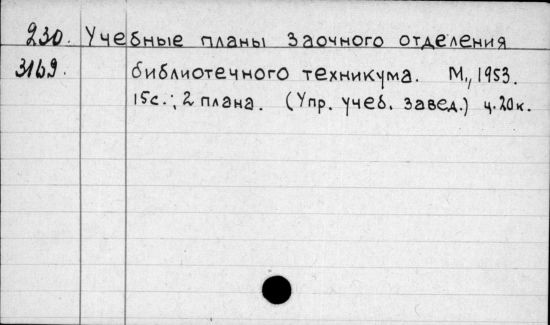 230. Учебные планы заочного отделения
3169. библиотечного техникума. М., 1953.
15с.; 2 плана. (Упр. учеб. завед.) ц. 20к.